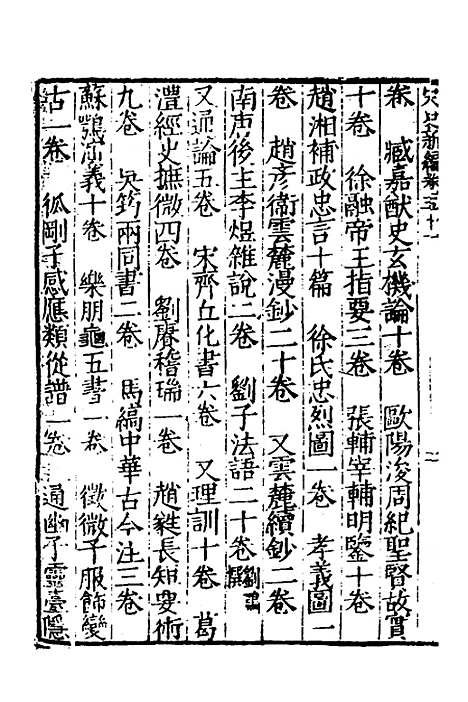 宋史新編卷五十一
卷　臧嘉猷史玄機論十卷　歐陽浚周紀聖賢故實
十卷　徐融帝王指要三卷　張輔宰輔明鑒十卷
趙湘補政忠言十篇　徐氏忠烈圖一卷　孝義圖一
卷　趙彥衛雲麓漫鈔二十卷　又雲麓續鈔二卷
南唐後主李煜雜說二卷　劉子法語二十卷劉鶚撰
又通論五卷　宋齊丘化書六卷　又理訓十卷　葛
澧經史摭微四卷　劉賡稽瑞一卷　趙蕤長短要術
九卷　吳筠兩同書二卷　馬縞中華古今注三卷
蘇鶚演義十卷　樂朋龜五書一卷　徵微子服飾變
古一卷　狐剛子感應類從譜一卷　通幽子靈臺隱